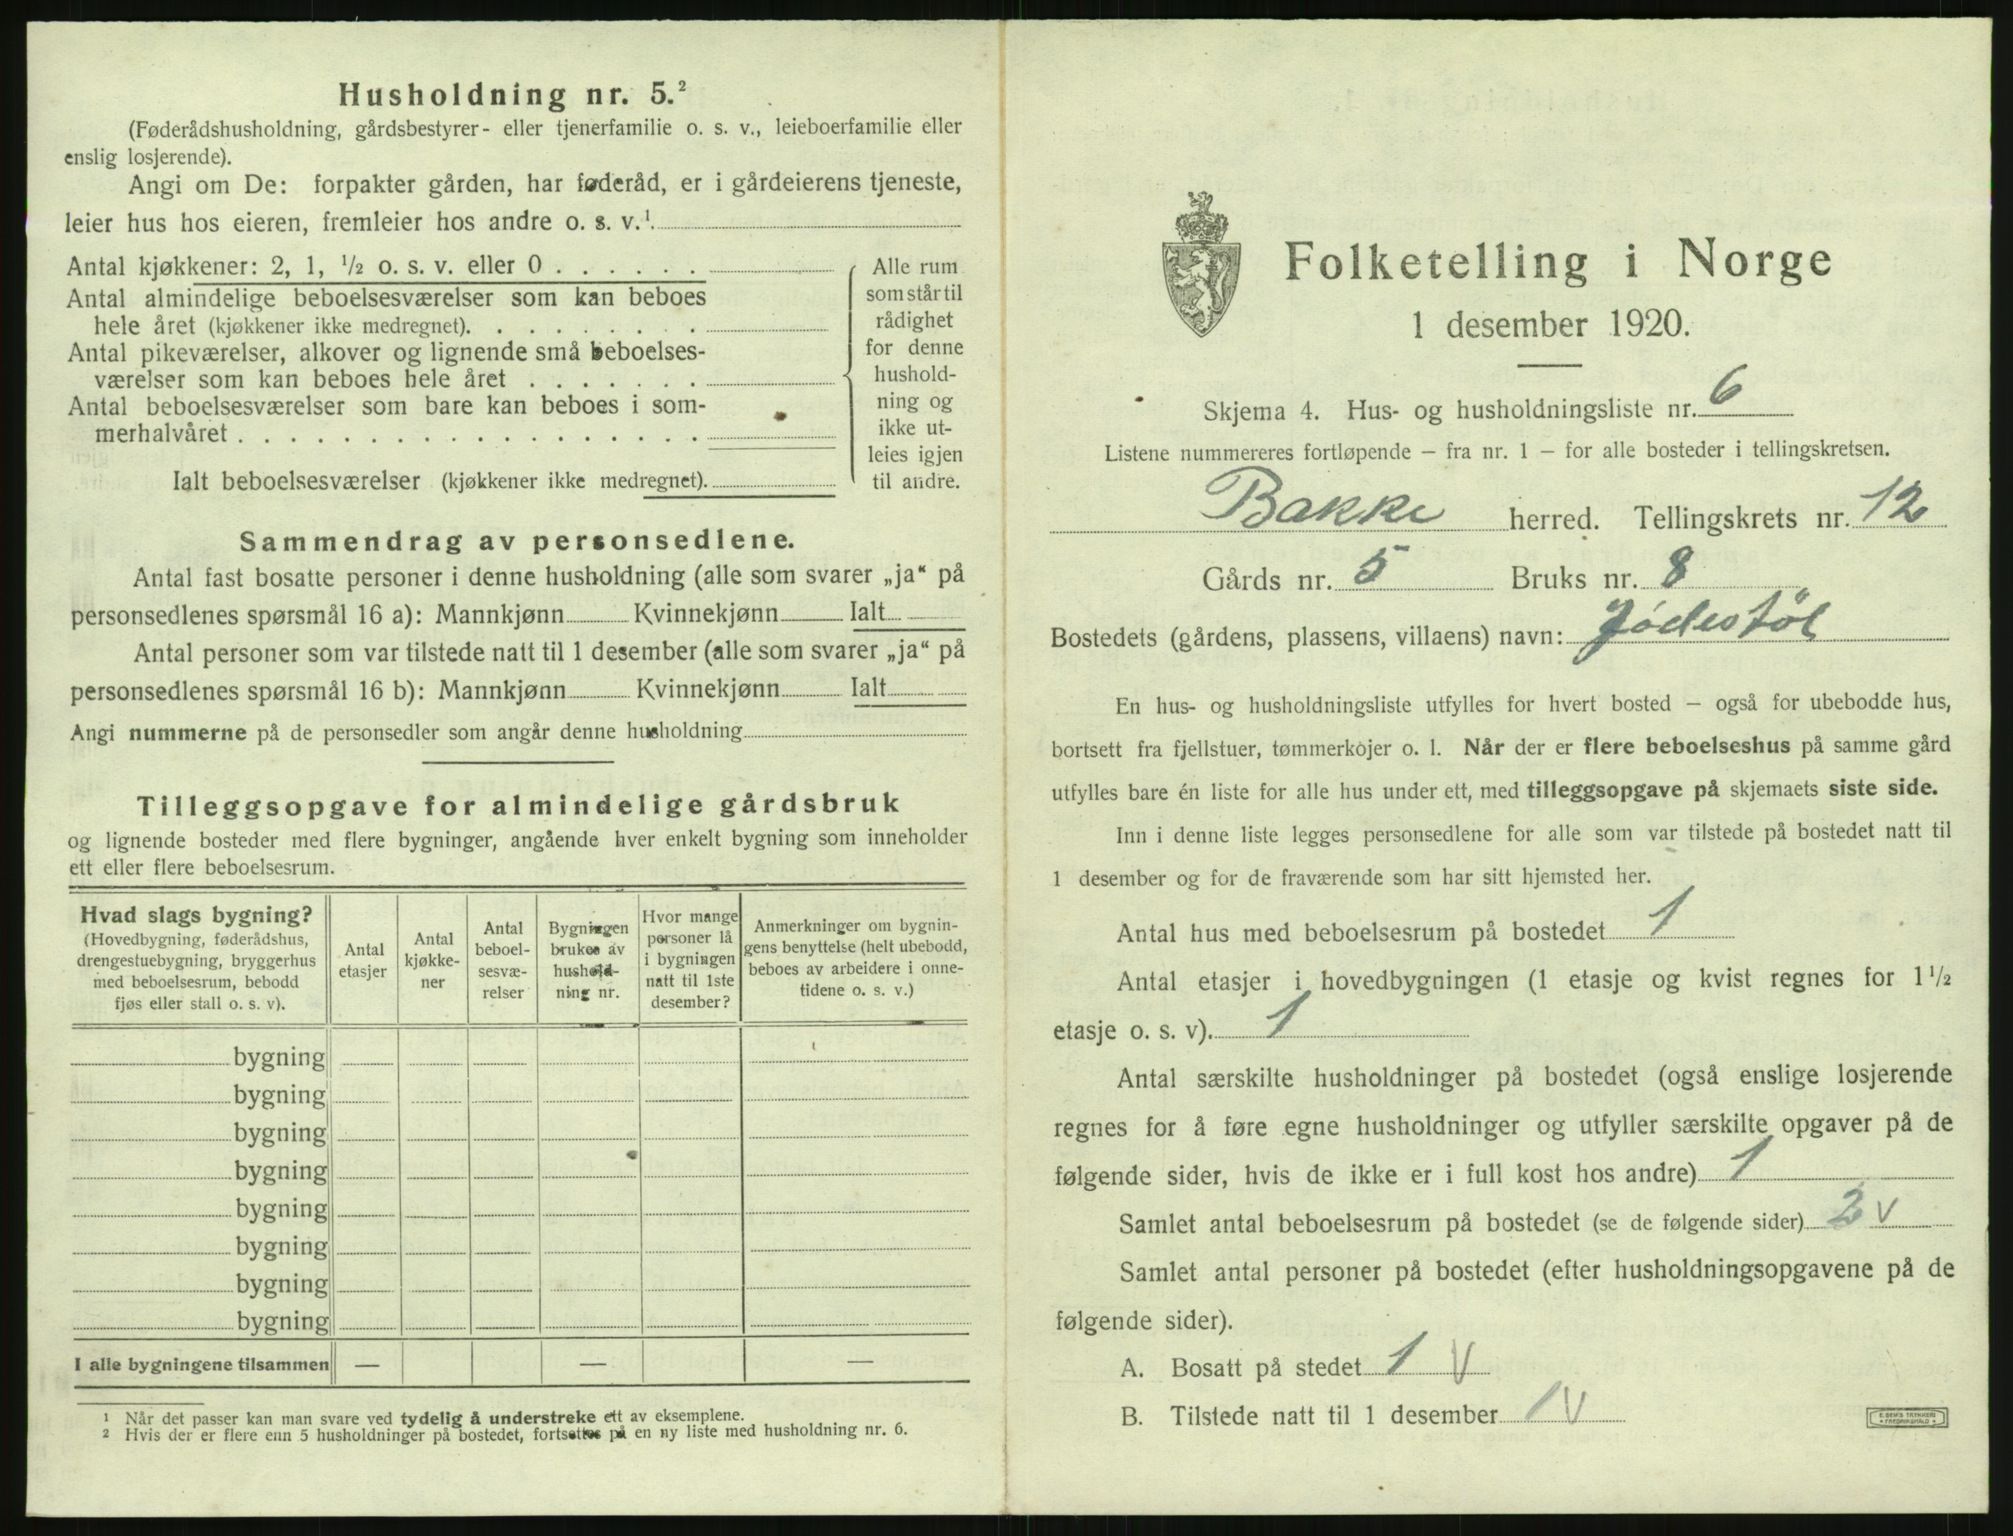 Husholdning nr. 5.²
(Føderådshusholdning, gårdsbestyrer- eller tjenerfamilie o. s. v., leieboerfamilie eller
enslig losjerende).
Angi om De: forpakter gården, har føderåd, er i gårdeierens tjeneste,
leier hus hos eieren, fremleier hos andre o. s. v.¹
Antal kjøkkener: 2, 1, ½ o. s. v. eller 0 . . . . . .
Antal almindelige beboelsesværelser som kan beboes
hele året (kjøkkener ikke medregnet). . . . . . . . .
Antal pikeværelser, alkover og lignende små beboelses-
værelser som kan beboes hele året . . . . . . .
Antal beboelsesværelser som bare kan beboes i som-
merhalvåret . . . . . . . . . . . . . . . . . .
Ialt beboelsesværelser (kjøkkener ikke medregnet).
Alle rum
som står til
rådighet
for denne
hushold-
ning og
ikke ut-
leies igjen
til andre.
Sammendrag av personsedlene.
Antal fast bosatte personer i denne husholdning (alle som svarer „ja“ på
personsedlenes spørsmål 16 a): Mannkjønn Kvinnekjønn Ialt
Antal personer som var tilstede natt til 1 desember (alle som svarer „ja“ på
personsedlenes spørsmål 16 b): Mannkjønn Kvinnekjønn Ialt
Angi nummerne på de personsedler som angår denne husholdning
Tilleggsopgave for almindelige gårdsbruk
og lignende bosteder med flere bygninger, angående hver enkelt bygning som inneholder
ett eller flere beboelsesrum.
Hvad slags bygning?
(Hovedbygning, føderådshus,
drengestuebygning, bryggerhus
med beboelsesrum, bebodd
fjøs eller stall o. s. v).
Antal
etasjer
Antal
kjøkke-
ner
Antal
beboel-
sesvæ-
relser
Bygningen
brukes av
hushold-
ning nr.
Hvor mange
personer lå
i bygningen
natt til 1ste
desember?
Anmerkninger om bygnin-
gens benyttelse (helt ubebodd,
beboes av arbeidere i onne-
tidene o. s. v.)
bygning
bygning
bygning
bygning
bygning
bygning
bygning
bygning
I alle bygningene tilsammen — — —
¹ Når det passer kan man svare ved tydelig å understreke ett av eksemplene.
² Hvis der er flere enn 5 husholdninger på bostedet, fortsettes på en ny liste med husholdning nr. 6.
Folketelling i Norge
1 desember 1920.
Skjema 4. Hus- og husholdningsliste nr. 6
Listene nummereres fortløpende – fra nr. 1 – for alle bosteder i tellingskretsen.
Bakke herred. Tellingskrets nr. 12
Gårds nr. 5 Bruks nr. 8
Bostedets (gårdens, plassens, villaens) navn: Jødestøl
En hus- og husholdningsliste utfylles for hvert bosted – også for ubebodde hus,
bortsett fra fjellstuer, tømmerkojer o. l. Når der er flere beboelseshus på samme gård
utfylles bare én liste for alle hus under ett, med tilleggsopgave på skjemaets siste side.
Inn i denne liste legges personsedlene for alle som var tilstede på bostedet natt til
1 desember og for de fraværende som har sitt hjemsted her.
Antal hus med beboelsesrum på bostedet 1
Antal etasjer i hovedbygningen (1 etasje og kvist regnes for 1½
etasje o. s. v). 1
Antal særskilte husholdninger på bostedet (også enslige losjerende
regnes for å føre egne husholdninger og utfyller særskilte opgaver på de
følgende sider, hvis de ikke er i full kost hos andre) 1
Samlet antal beboelsesrum på bostedet (se de følgende sider) 2 v
Samlet antal personer på bostedet (efter husholdningsopgavene på de
følgende sider).
A. Bosatt på stedet 1 v
B. Tilstede natt til 1 desember 1 v